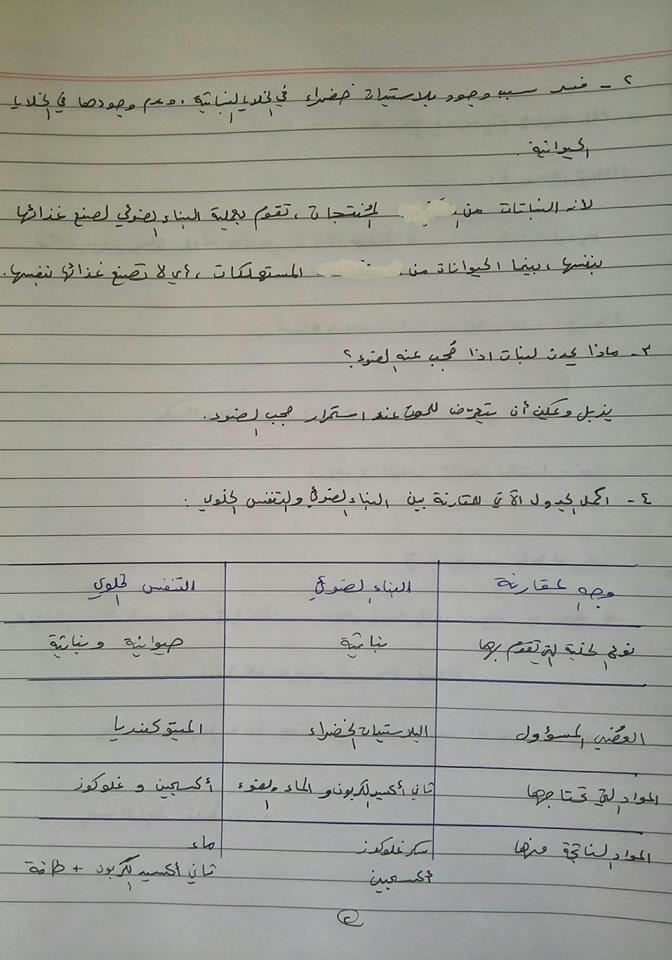 ٢- فسر سبب وجود بلاستيدات خضراء في الخلايا النباتية ، وعدم وجودها في الخلايا
الحيوانية .
لأنه النباتات من المنتجات ، تقوم بعملية البناء الضوئي لصنع غذائها
بنفسها ، بينما الحيواناة من المستهلكات ، أي لا تصنع غذائها بنفسها .
٣- ماذا يحدث لنبات اذا حُجب عنه الضوء ؟
يذبل ويمكن أن يتعرض للموت عند استمرار حجب الضوء .
٤- اكمل الجدول الآتي للمقارنة بين البناء الضوئي والتنفس الخلوي :
وجه المقارنة البناء الضوئي التنفس الخلوي
نوع الخلية التي تقوم بها نباتية حيوانية و نباتية
العُضَي المسؤول البلاستيدات الخضراء الميتوكندريا
المواد التي تحتاجها ثاني أكسيد الكربون و الماء والضوء أكسجين و غلوكوز
المواد الناتجة منها سكر غلوكوز ماء
أكسجين ثاني أكسيد الكربون + طاقة
٢